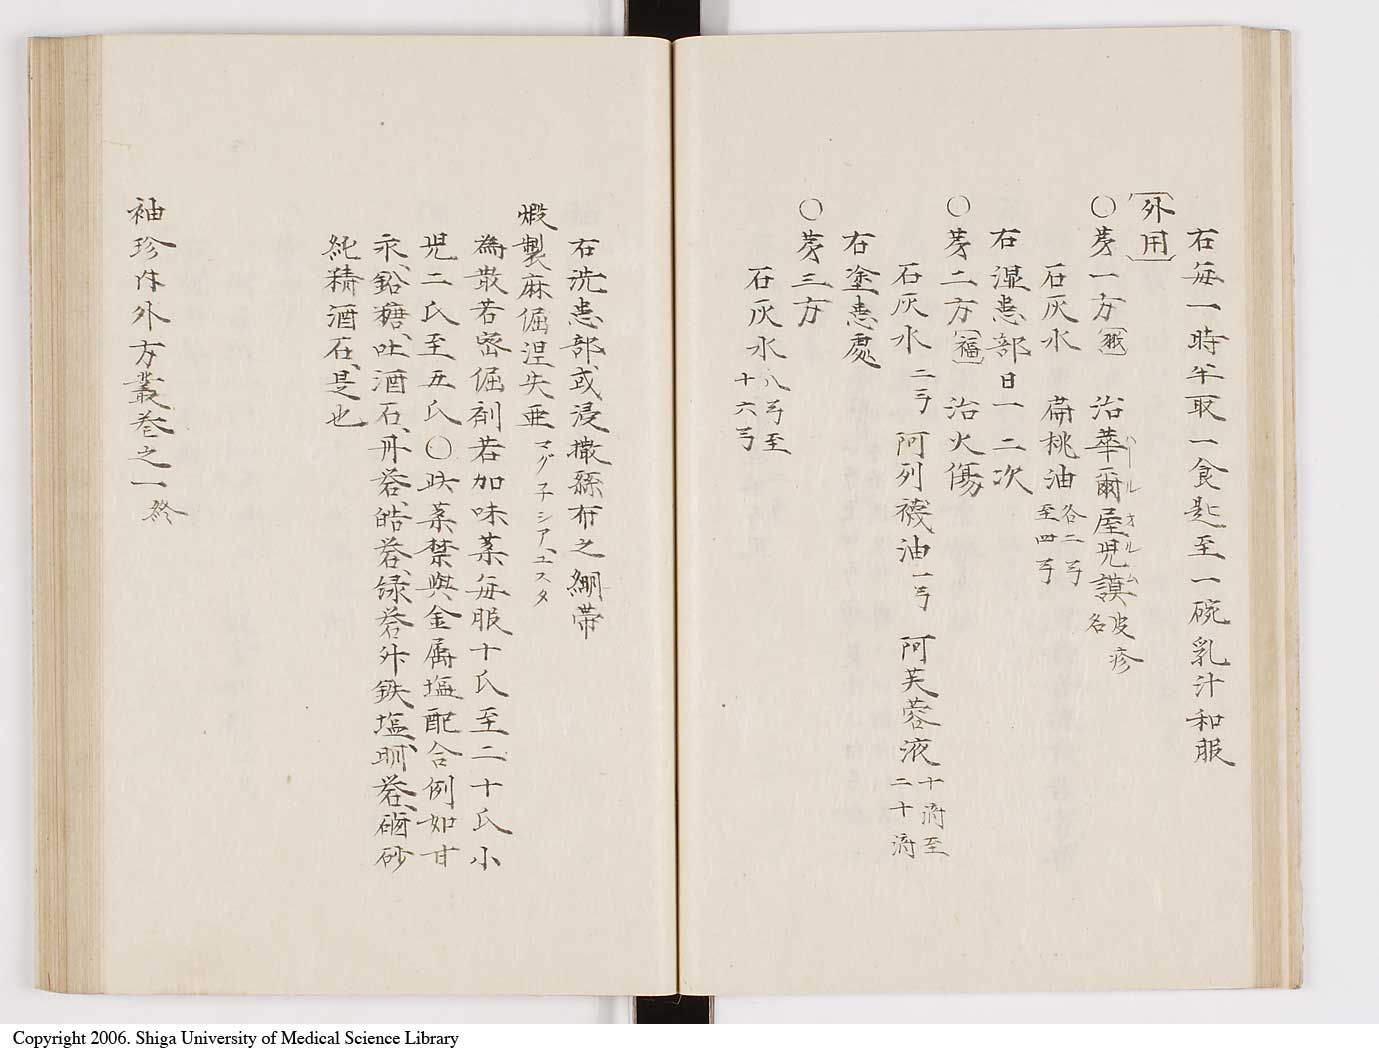 右毎一時半取一食匙至一碗乳汁和服
〔外用〕
〇㐧一方〔戕〕治華爾屋児謨皮疹名
ハールオルム
石灰水 扁桃油各二弓至四弓
右湿患部日一二次
〇㐧二方〔福〕治火傷
石灰水二弓 阿列襪油一弓 阿芙蓉液十滴至二十滴
右塗患處
〇㐧三方
石灰水八弓至十六弓
右洗患部或浸撒糸布之繃帯
煅製麻倔涅失亜マグ子シア、ユスタ
為散若密倔剤若加味薬毎服十氏至二十氏小
児二氏至五氏〇此薬禁與金属塩配合例如甘
汞、鉛糖、吐酒石、丹礬、皓礬、緑礬外鉄塩、明礬、硇砂
純精酒石、是也
袖珍内外方叢巻之一終
Copyright 2006. Shiga University of Medical Science Library